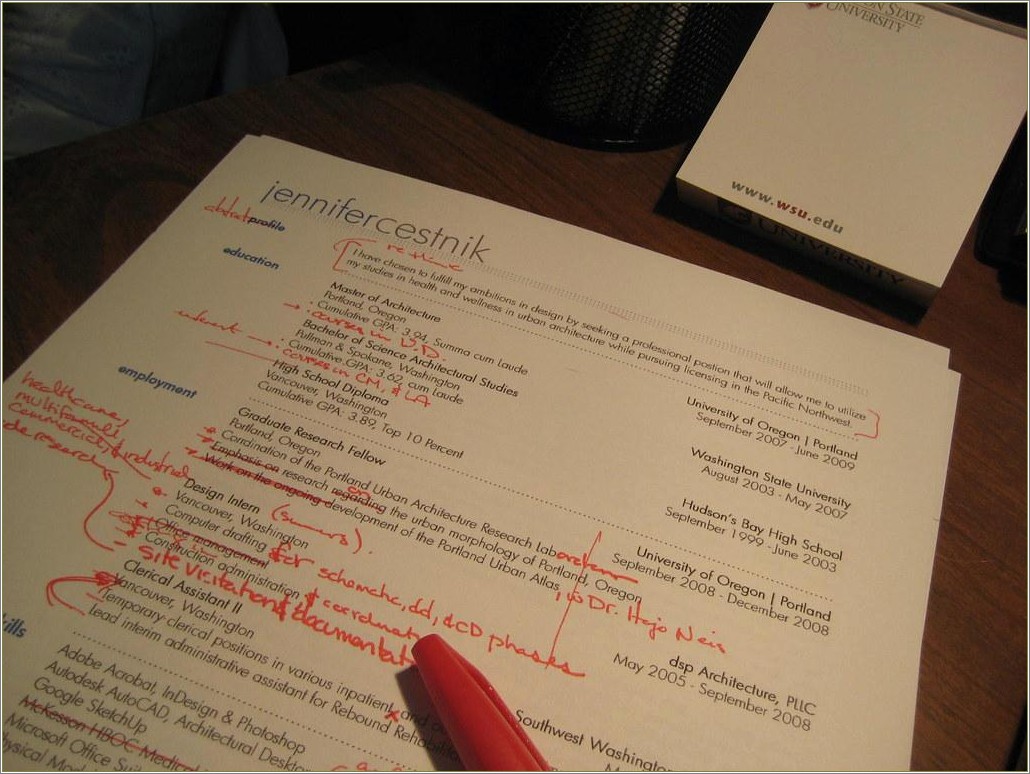 ON STATE
UNIVERSITY
www.wsu.edu
UNIVERSITY
jennifercestnik
abstract profile
re-time
I have chosen to fulfill my ambitions in design by seeking a professional position that will allow me to utilize
my studies in health and wellness in urban architecture while pursuing licensing in the Pacific Northwest.
education
Master of Architecture
University of Oregon | Portland
Portland, Oregon
September 2007 - June 2009
Cumulative GPA: 3.94, Summa cum Laude
courses in U.D.
Bachelor of Science Architectural Studies
Washington State University
Pullman & Spokane, Washington
August 2003 - May 2007
Cumulative GPA: 3.62, cum Laude
courses in CM, & LA
High School Diploma
Hudson's Bay High School
Vancouver, Washington
September 1999 - June 2003
Cumulative GPA: 3.89, Top 10 Percent
employment
healthcare,
multifamily,
commercial, & industrial
Graduate Research Fellow
University of Oregon | Portland
Portland, Oregon
September 2008 - December 2008
Corrdination of the Portland Urban Architecture Research Lab
Emphasis on research regarding the urban morphology of Portland, Oregon
on
Work on the ongoing development of the Portland Urban Atlas
, w Dr. Hajo Neis
Design Intern
dsp Architecture, PLLC
Vancouver, Washington
May 2005 - September 2008
Computer drafting for schematic, dd, & CD phases
Office management
Construction administration & coordinat
site visitations & documentat
Clerical Assistant II
Southwest Washington
Vancouver, Washington
Temporary clerical positions in various inpatient and
Lead interim administrative assistant for Rebound Rehabilit
kills
Adobe Acrobat, InDesign & Photoshop
Autodesk AutoCAD, Architectural Deskto
Google SketchUp
McKesson HBOC Medical
Microsoft Office Suit
hysical Mod